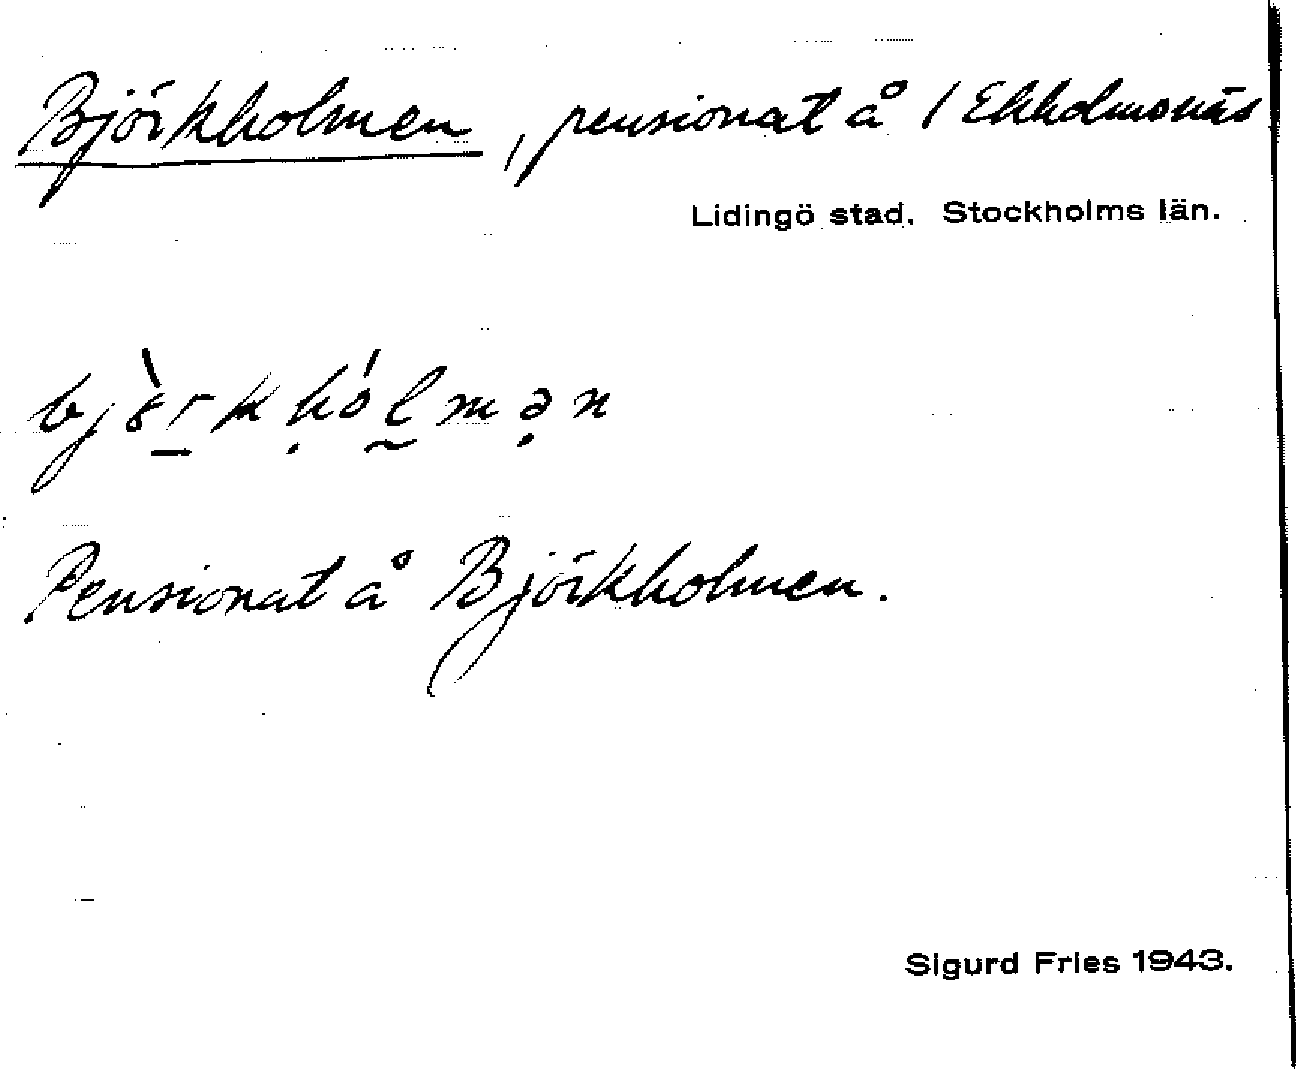 Björkholmen, pensionat å 1 Ekholmsnäs
Lidingö stad. Stockholms län.
Pensionat å Björkholmen.
Sigurd Fries 1943.